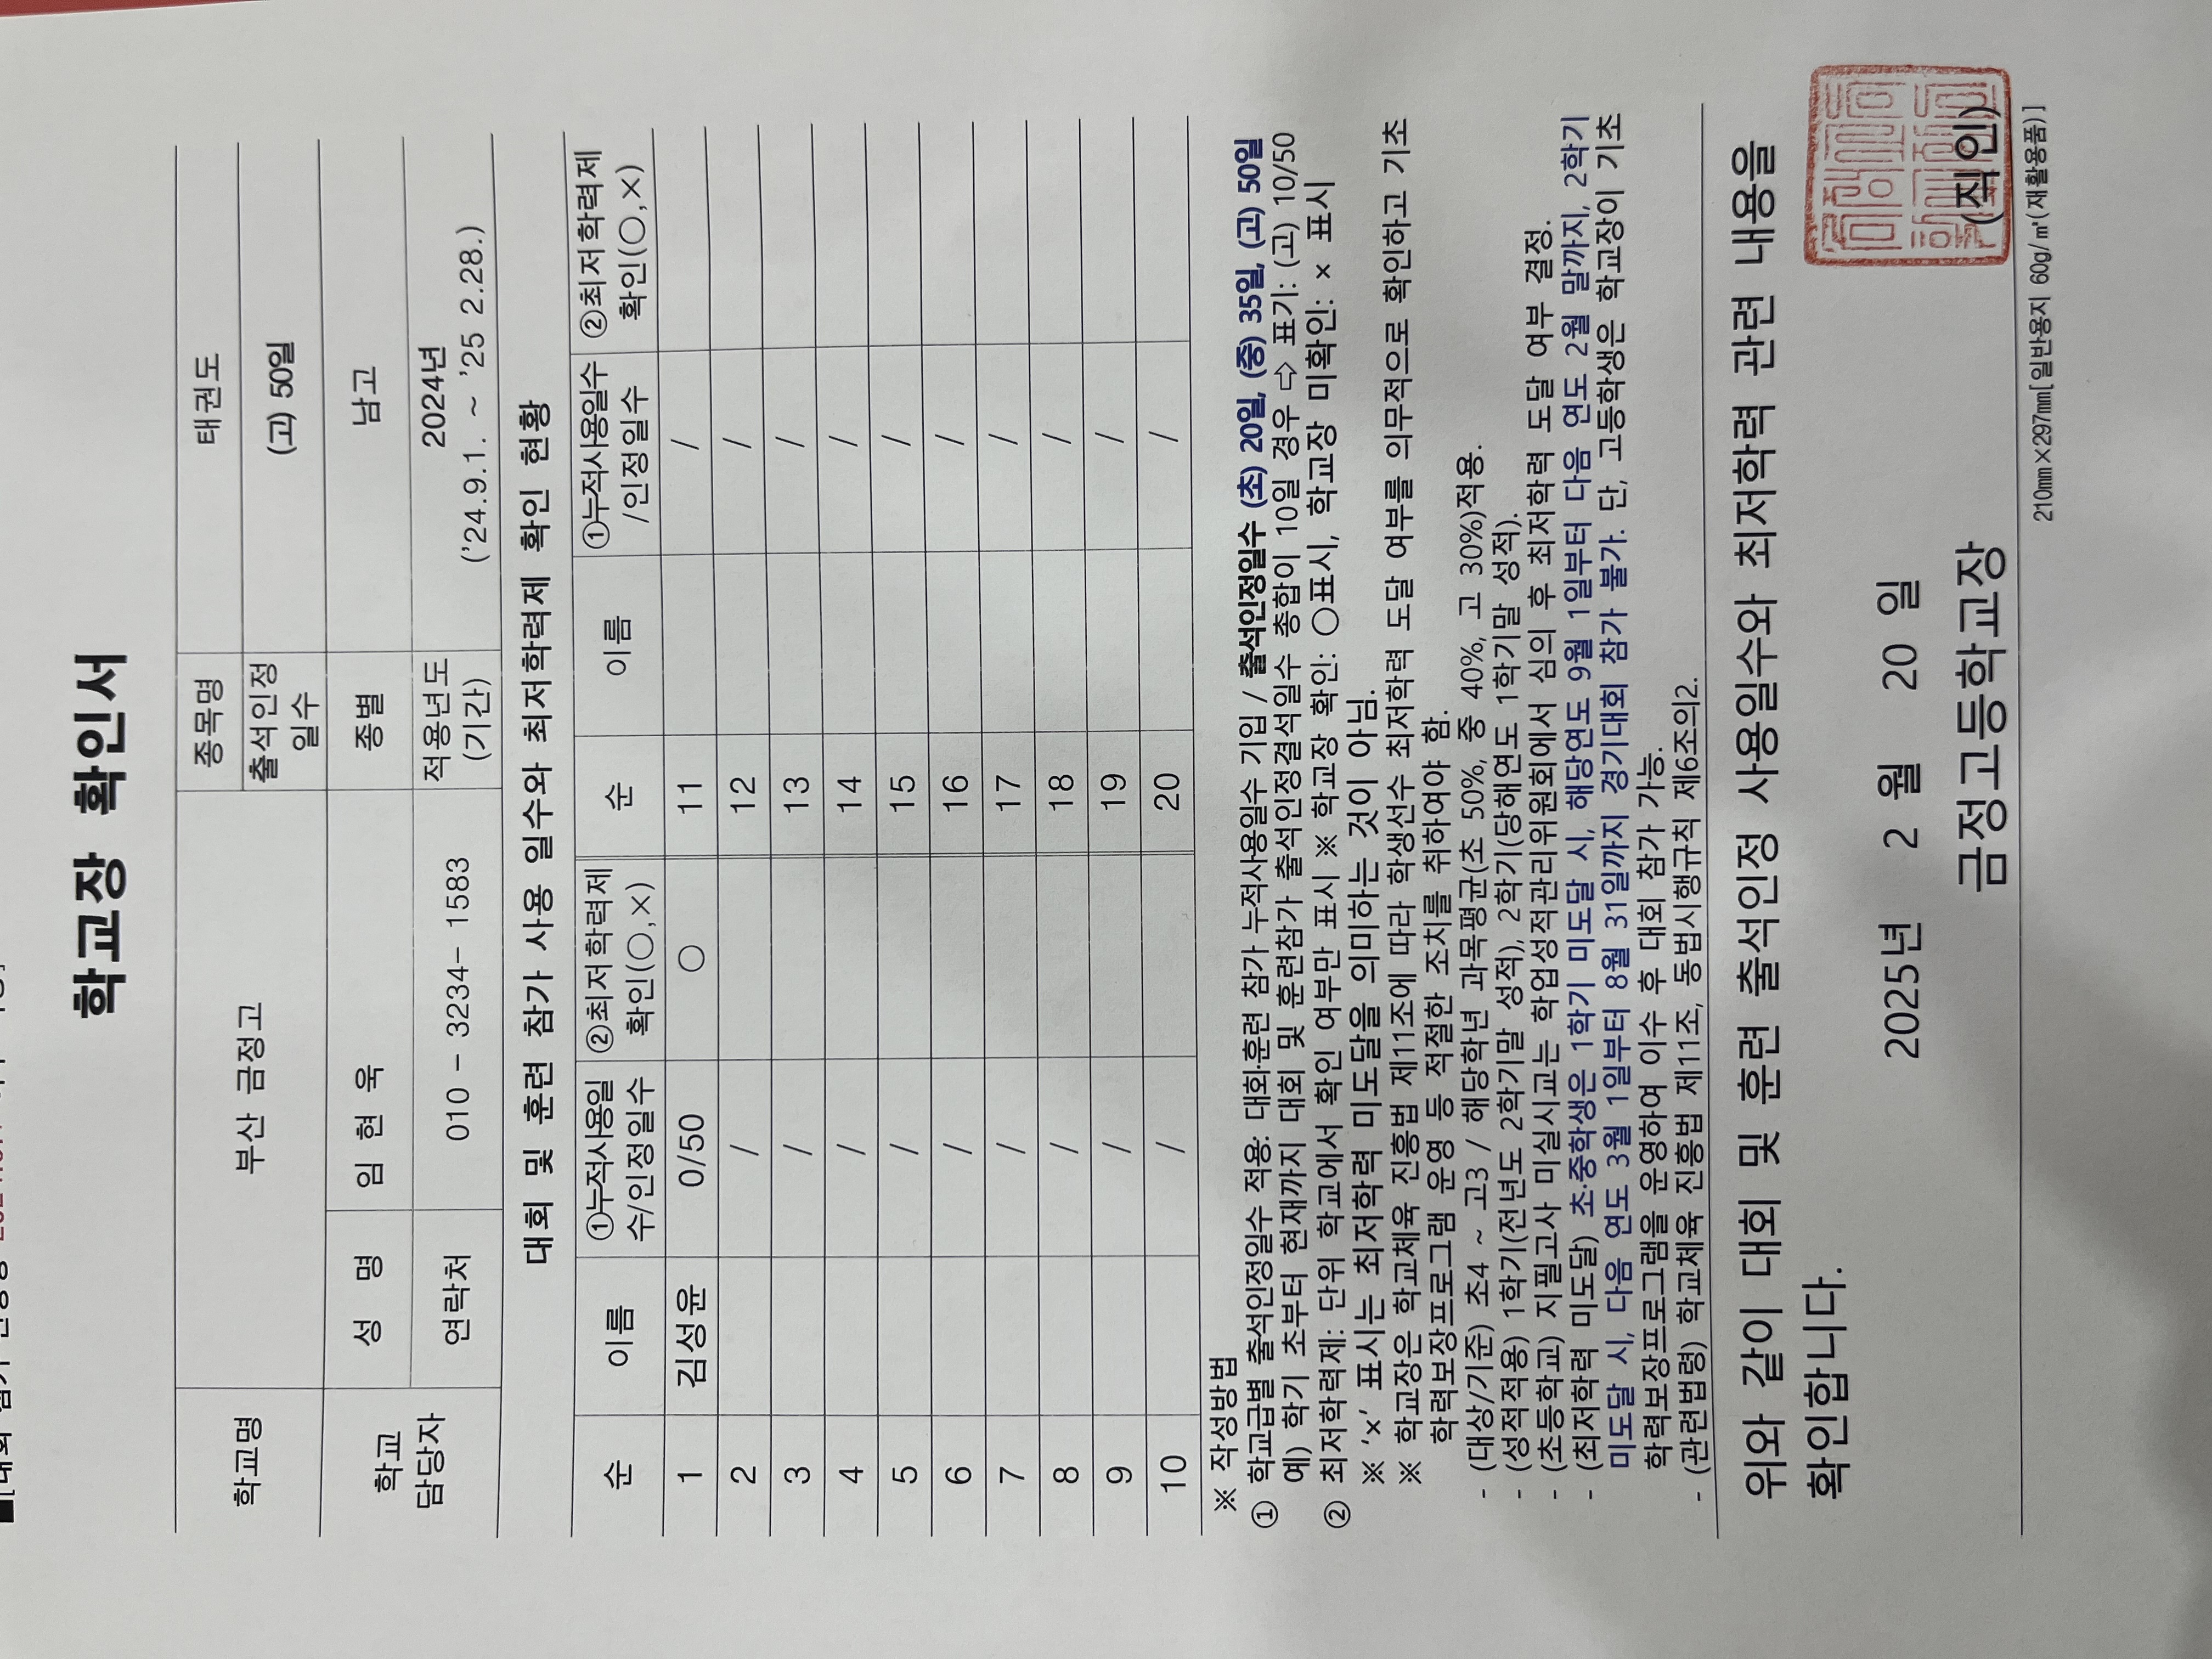 학교장 확인서
학교명 부산 금정고 종목명 태권도
출석인정일수 (고) 50일
학교 담당자 성 명 임 현 욱 종별 남고
연락처 010 - 3234- 1583 적용년도 (기간) 2024년 ('24.9.1. ~ '25 2.28.)
대회 및 훈련 참가 사용 일수와 최저학력제 확인 현황
순 이름 ①누적사용일수/인정일수 ②최저학력제 확인(○,×) 순 이름 ①누적사용일수/인정일수 ②최저학력제 확인(○,×)
1 김성윤 0/50 ○ 11 /
2 / 12 /
3 / 13 /
4 / 14 /
5 / 15 /
6 / 16 /
7 / 17 /
8 / 18 /
9 / 19 /
10 / 20 /
※ 작성방법
① 학교급별 출석인정일수 적용: 대회·훈련 참가 누적사용일수 기입 / 출석인정일수 (초) 20일, (중) 35일, (고) 50일
예) 학기 초부터 현재까지 대회 및 훈련참가 출석인정결석일수 총합이 10일 경우 ⇨ 표기: (고) 10/50
② 최저학력제: 단위 학교에서 확인 여부만 표시 ※ 학교장 확인: ○표시, 학교장 미확인: × 표시
※ '×' 표시는 최저학력 미도달을 의미하는 것이 아님.
※ 학교장은 학교체육 진흥법 제11조에 따라 학생선수 최저학력 도달 여부를 의무적으로 확인하고 기초
학력보장프로그램 운영 등 적절한 조치를 취하여야 함.
- (대상/기준) 초4 ~ 고3 / 해당학년 과목평균(초 50%, 중 40%, 고 30%)적용.
- (성적적용) 1학기(전년도 2학기말 성적), 2학기(당해연도 1학기말 성적).
- (초등학교) 지필고사 미실시교는 학업성적관리위원회에서 심의 후 최저학력 도달 여부 결정.
- (최저학력 미도달) 초·중학생은 1학기 미도달 시, 해당연도 9월 1일부터 다음 연도 2월 말까지, 2학기
미도달 시, 다음 연도 3월 1일부터 8월 31일까지 경기대회 참가 불가. 단, 고등학생은 학교장이 기초
학력보장프로그램을 운영하여 이수 후 대회 참가 가능.
- (관련법령) 학교체육 진흥법 제11조, 동법시행규칙 제6조의2.
위와 같이 대회 및 훈련 출석인정 사용일수와 최저학력 관련 내용을
확인합니다.
2025년 2 월 20 일
금정고등학교장 (직인)
210㎜×297㎜[일반용지 60g/㎡(재활용품)]